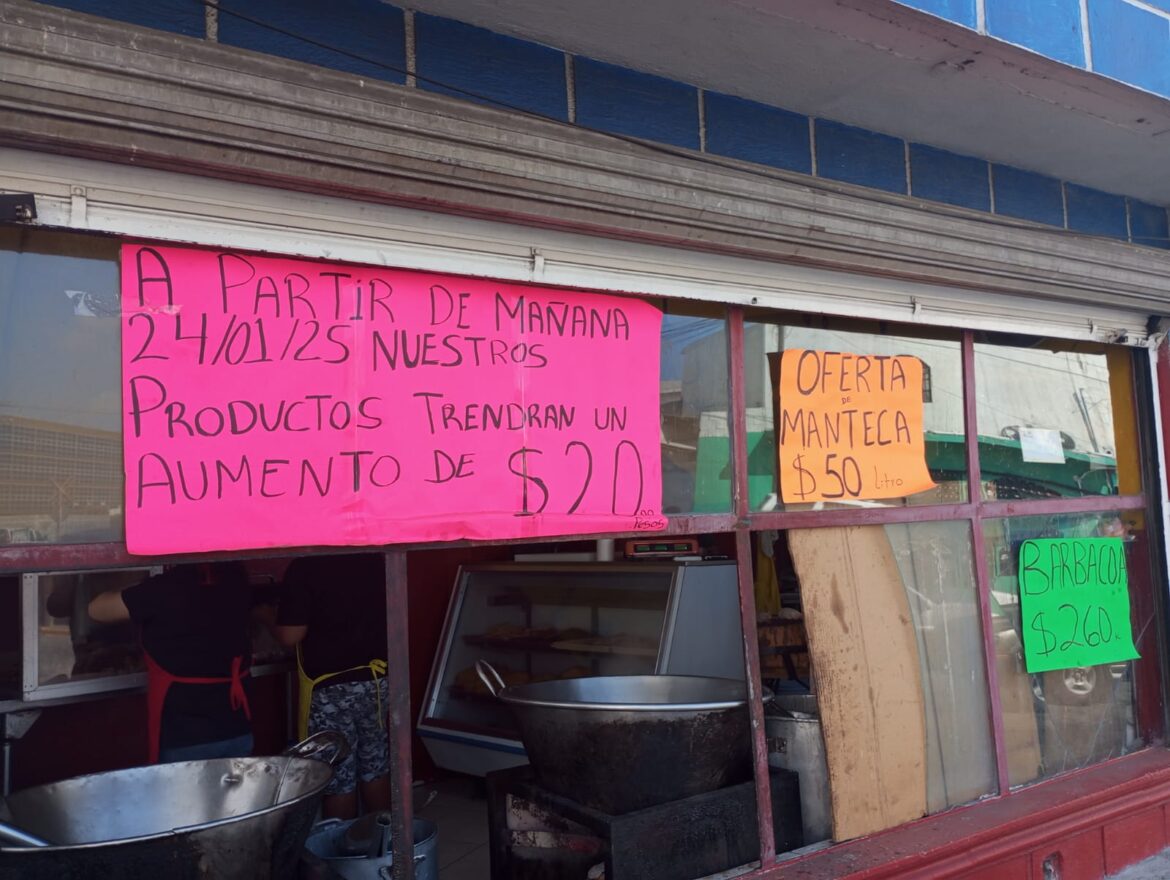 A PARTIR DE MAÑANA
24/01/25 NUESTROS
PRODUCTOS TRENDRAN UN
AUMENTO DE $20.00
PESOS
OFERTA
DE
MANTECA
$50 Litro
BARBACOA
$260 K